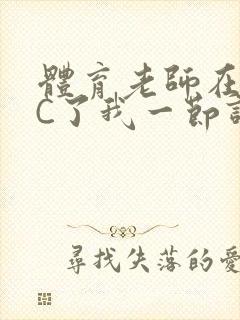 體育老師在
C了我一節
尋找失落的